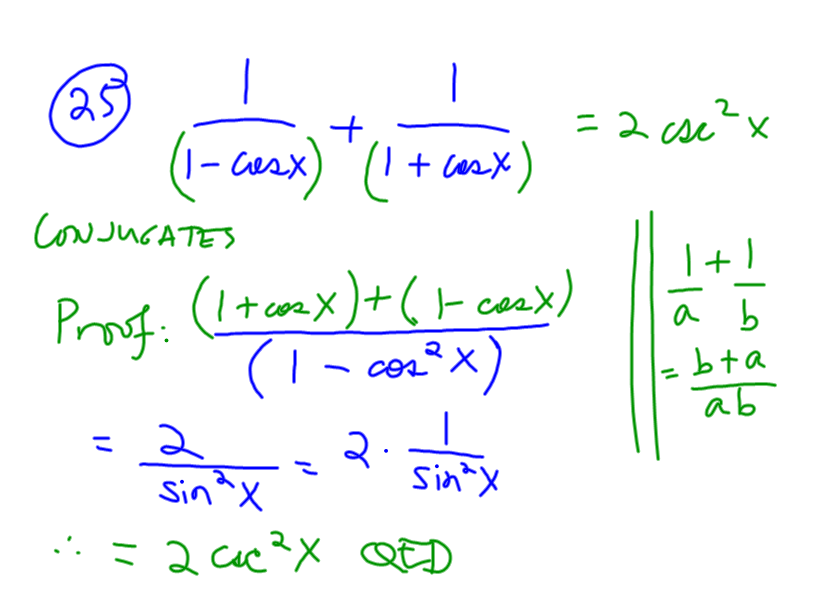 25 1/(1 - cosx) + 1/(1 + cosx) = 2 csc² x
CONJUGATES
Proof: ((1 + cosx) + (1 - cosx))/(1 - cos² x)
= 2/sin² x = 2 · 1/sin² x
∴ = 2 csc² x QED
1/a + 1/b
= (b + a)/ab